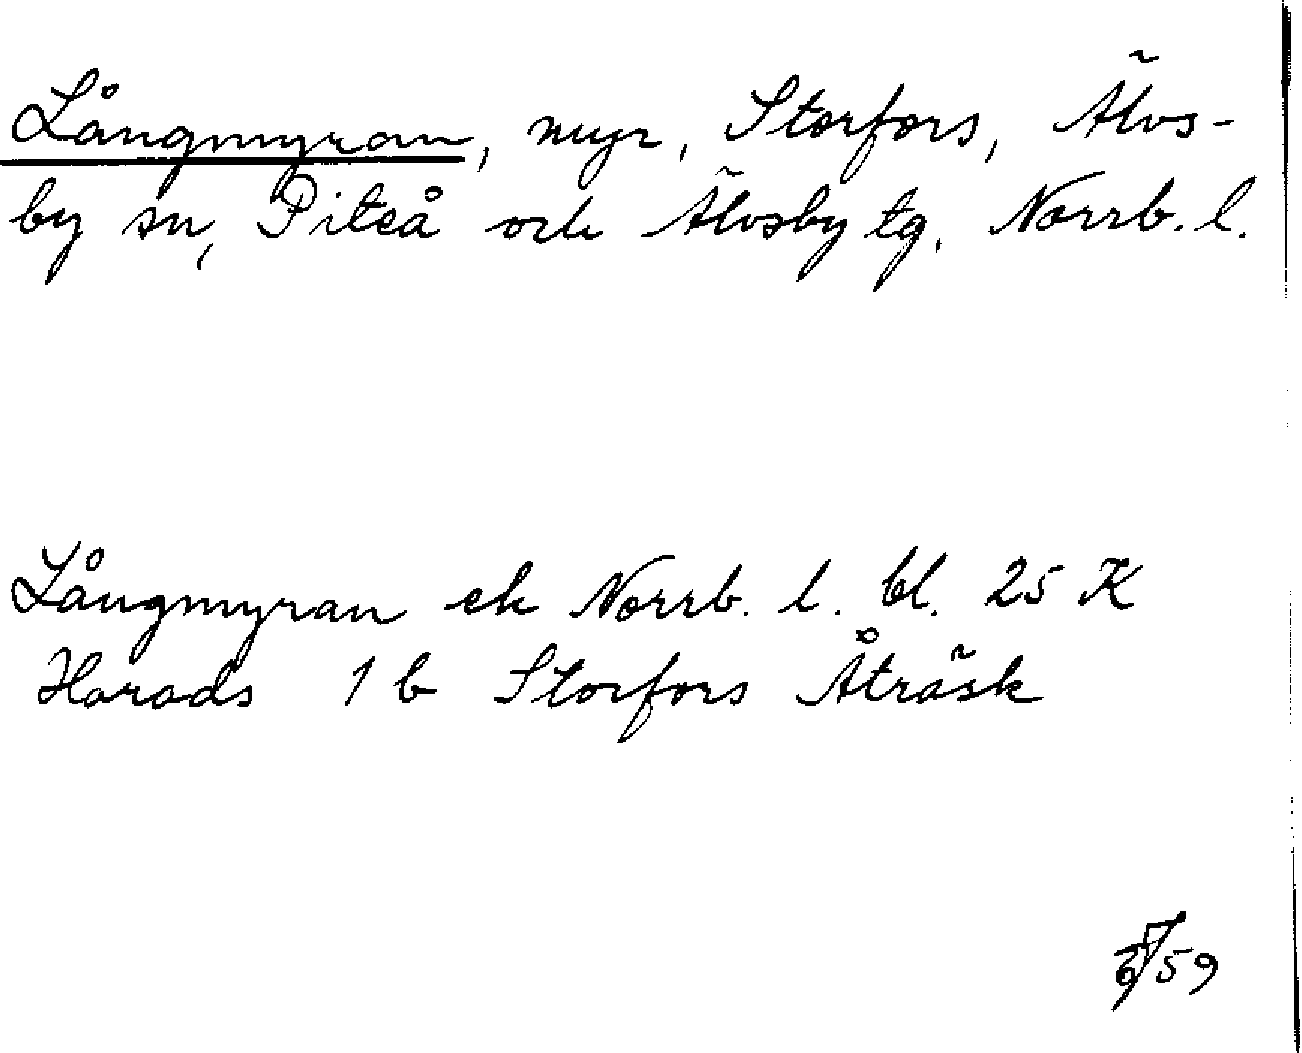 Långmyran, myr, Storfors, Älvs-
by sn, Piteå och Älvsby tg, Norrb. l.
Långmyran ek Norrb. l. bl. 25 K
Harads 1 b Storfors Åträsk
59